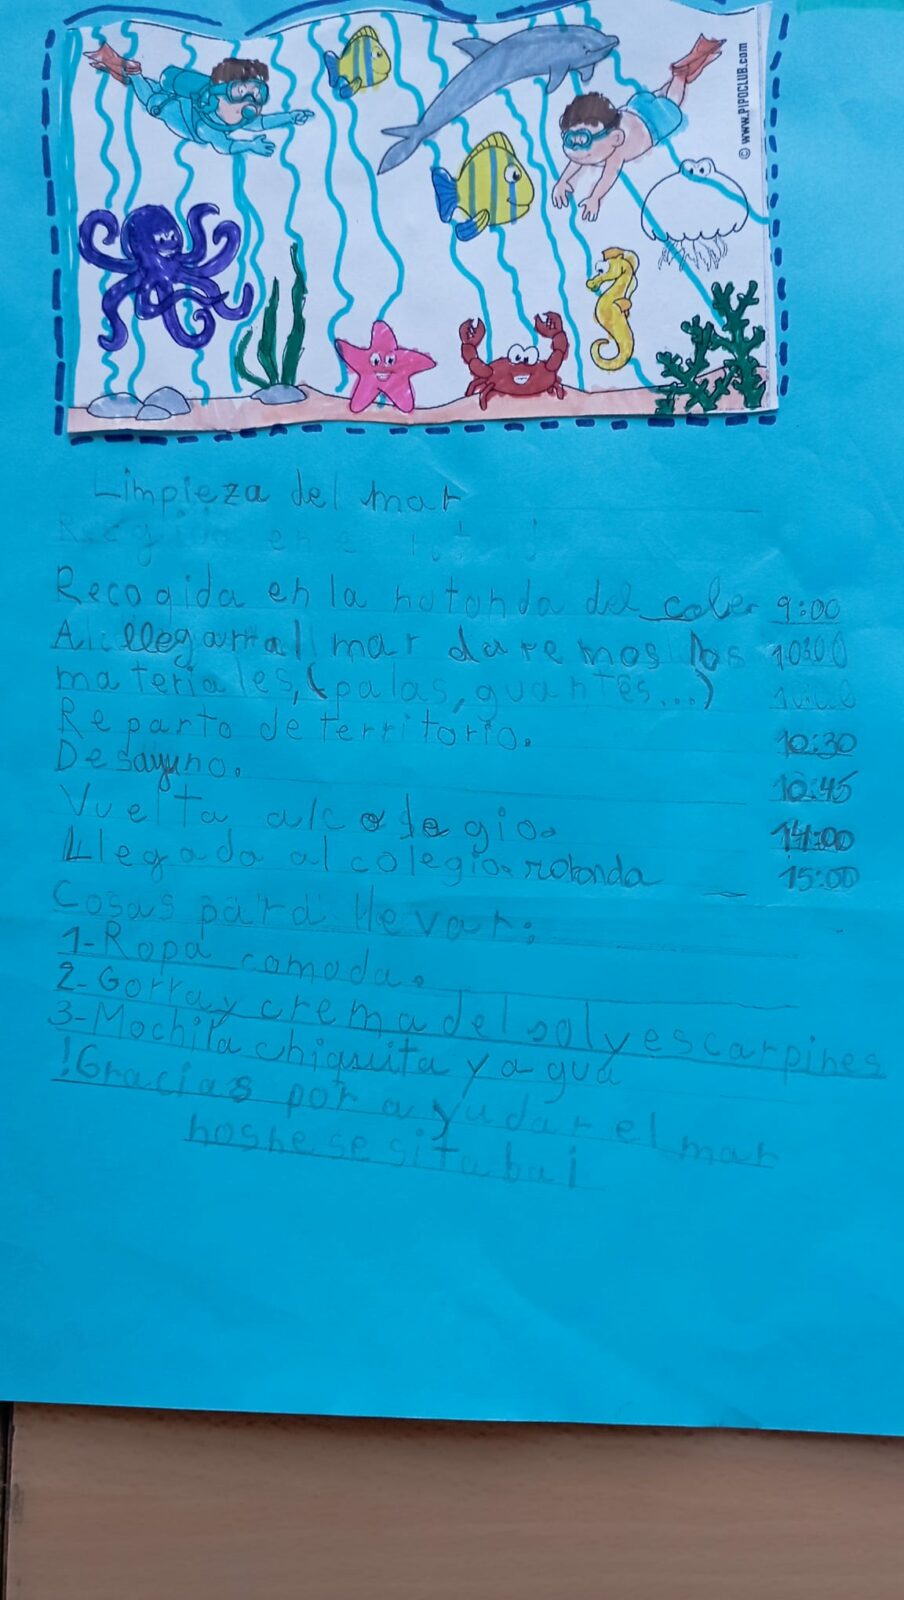 © www.PIPOCLUB.com
Limpieza del mar
Recogida en la rotonda del coler 9:00
Al llegar al mar daremos los 10:00
materiales, (palas, guantes...)
Reparto de territorio. 10:30
Desayuno. 10:45
Vuelta al colegio. 14:00
Llegada al colegio. rotonda 15:00
Cosas para llevar:
1-Ropa comoda.
2-Gorra y crema del sol y escarpines
3-Mochila chiquita y agua
!Gracias por ayudar el mar